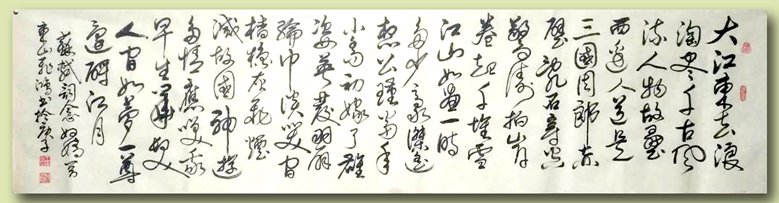 大江東去浪
淘盡千古風
流人物故壘
西邊人道是
三國周郎赤
壁亂石穿空
驚濤拍岸
卷起千堆雪
江山如畫一時
多少豪傑遙
想公瑾當年
小喬初嫁了雄
姿英發羽扇
綸巾談笑間
檣櫓灰飛煙
滅故國神遊
多情應笑我
早生華髮
人間如夢一尊
還酹江月
蘇軾詞念奴嬌
東山飛鴻書於庚子